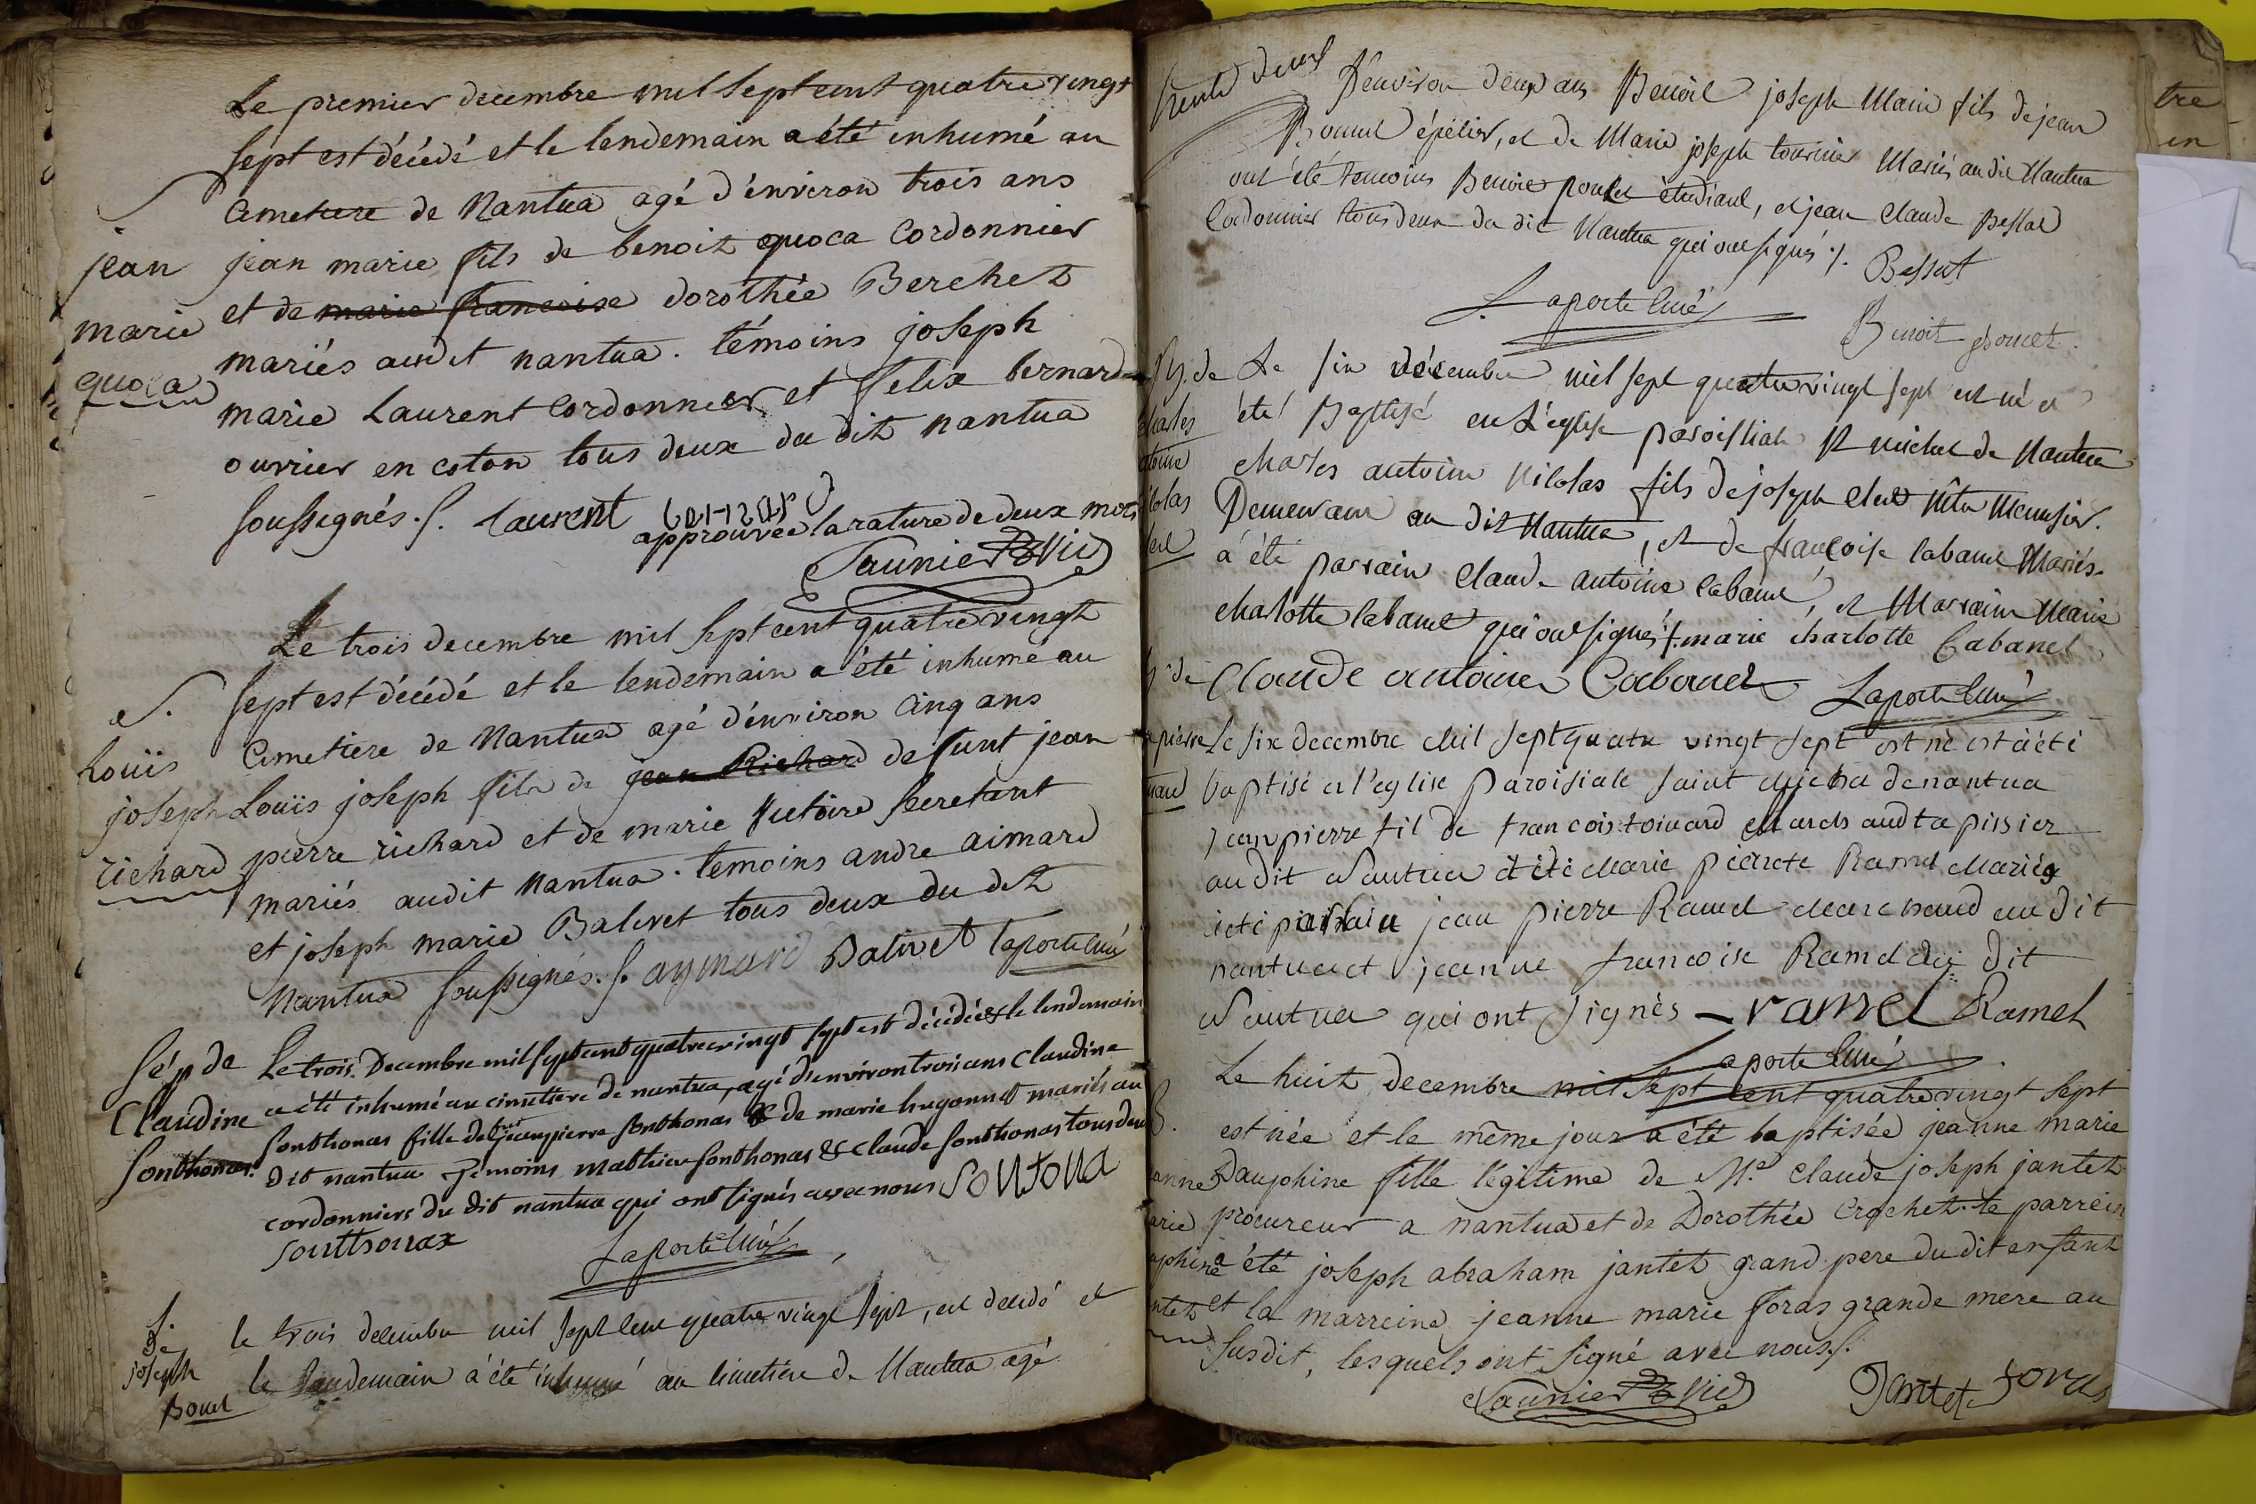 Le premier decembre mil sept cent quatre vingt
sept est décédé et le lendemain a été inhumé au
S. cimetiere de Nantua agé d'environ trois ans
jean jean marie fils de benoit quoca Cordonnier
et de marie francoise dorothée Berchet
marie mariés audit nantua. témoins joseph
quoca marie Laurent Cordonnier et felix bernard
ouvrier en coton tous deux du dit nantua
soussignés ./. Laurent
approuvée la rature de deux mots
Saunier Vic
Le trois decembre mil sept cent quatre vingt
sept est décédé et le lendemain a été inhumé au
S. Cimetiere de Nantua agé d'environ cinq ans
Louïs Louïs joseph fils de jean Richard defunt jean
joseph pierre richard et de marie Victoire secretant
richard mariés audit Nantua. temoins andre aimard
et joseph marie Balivet tous deux du dit
Nantua soussignés ./. aymard Balivet Laporte Curé
Sép de Le trois Decembre mil sept cent quatre vingt sept est décédée & le lendemain
Claudine a été inhumé au cimetiere de nantua, agé d'environ trois ans Claudine
Sonthonas. Sonthonas fille de jean pierre Sonthonas & de marie hugonnet mariés au
dit nantua Témoins mathieu Sonthonas & Claude Sonthonas tous deux
cordonniers du dit nantua qui ont signés avec nous Sontona
Sonthonax
Laporte Curé
S. de le trois decembre mil sept cent quatre vingt sept, est decedé et
joseph le lendemain à été inhumé au cimetiere de Nantua agé
Bonet
trente deux
D'environ deux ans Benoit joseph Main fils de jean
épicier, et de Marie joseph tournier Mariés au dit Nantua
ont été temoins Benoit poncet étudiant, et jean Claude Bessat
Cordonnier tous deux du dit Nantua qui ont signés ./.
Bessat
Laporte Curé
Benoit poncet
B. de Le six décembre mil sept quatre vingt sept est né et
charles été Baptisé en L'église paroissiale St michel de Nantua
charles antoine Nicolas fils de joseph Menusier.
Demeurant au dit Nantua, et de françoise Cabanet Mariés.
a été parrain Claude antoine Cabanet, et Marraine Marie
charlotte Cabanet qui ont signés ./. marie charlotte Cabanet
Claude antoine Cabanet Laporte Curé
pierre Le six decembre mil sept quatre vingt sept est nè est à été
baptisé a l'eglise paroisiale saint michel de nantua
jean pierre fil de francois toinard Marchand tapissier
au dit Nantua et de Marie pierrete Ramel Mariés
a eté parrain jean pierre Ramel Marchand au dit
nantua et jeanne francoise Ramel du dit
Nantua qui ont signès ramel Ramel
Laporte Curé
Le huit decembre mil sept cent quatre vingt sept
B. est née et le même jour a été baptisée jeanne marie
Dauphine fille légitime de Me. Claude joseph jantet
procureur a nantua et de Dorothée Crochet. le parrein
a été joseph abraham jantet grand pere du dit enfant
et la marreine jeanne marie foras grande mere au
susdit, lesquels ont signé avec nous ./.
Saunier Vic Jantet foras
tre
en